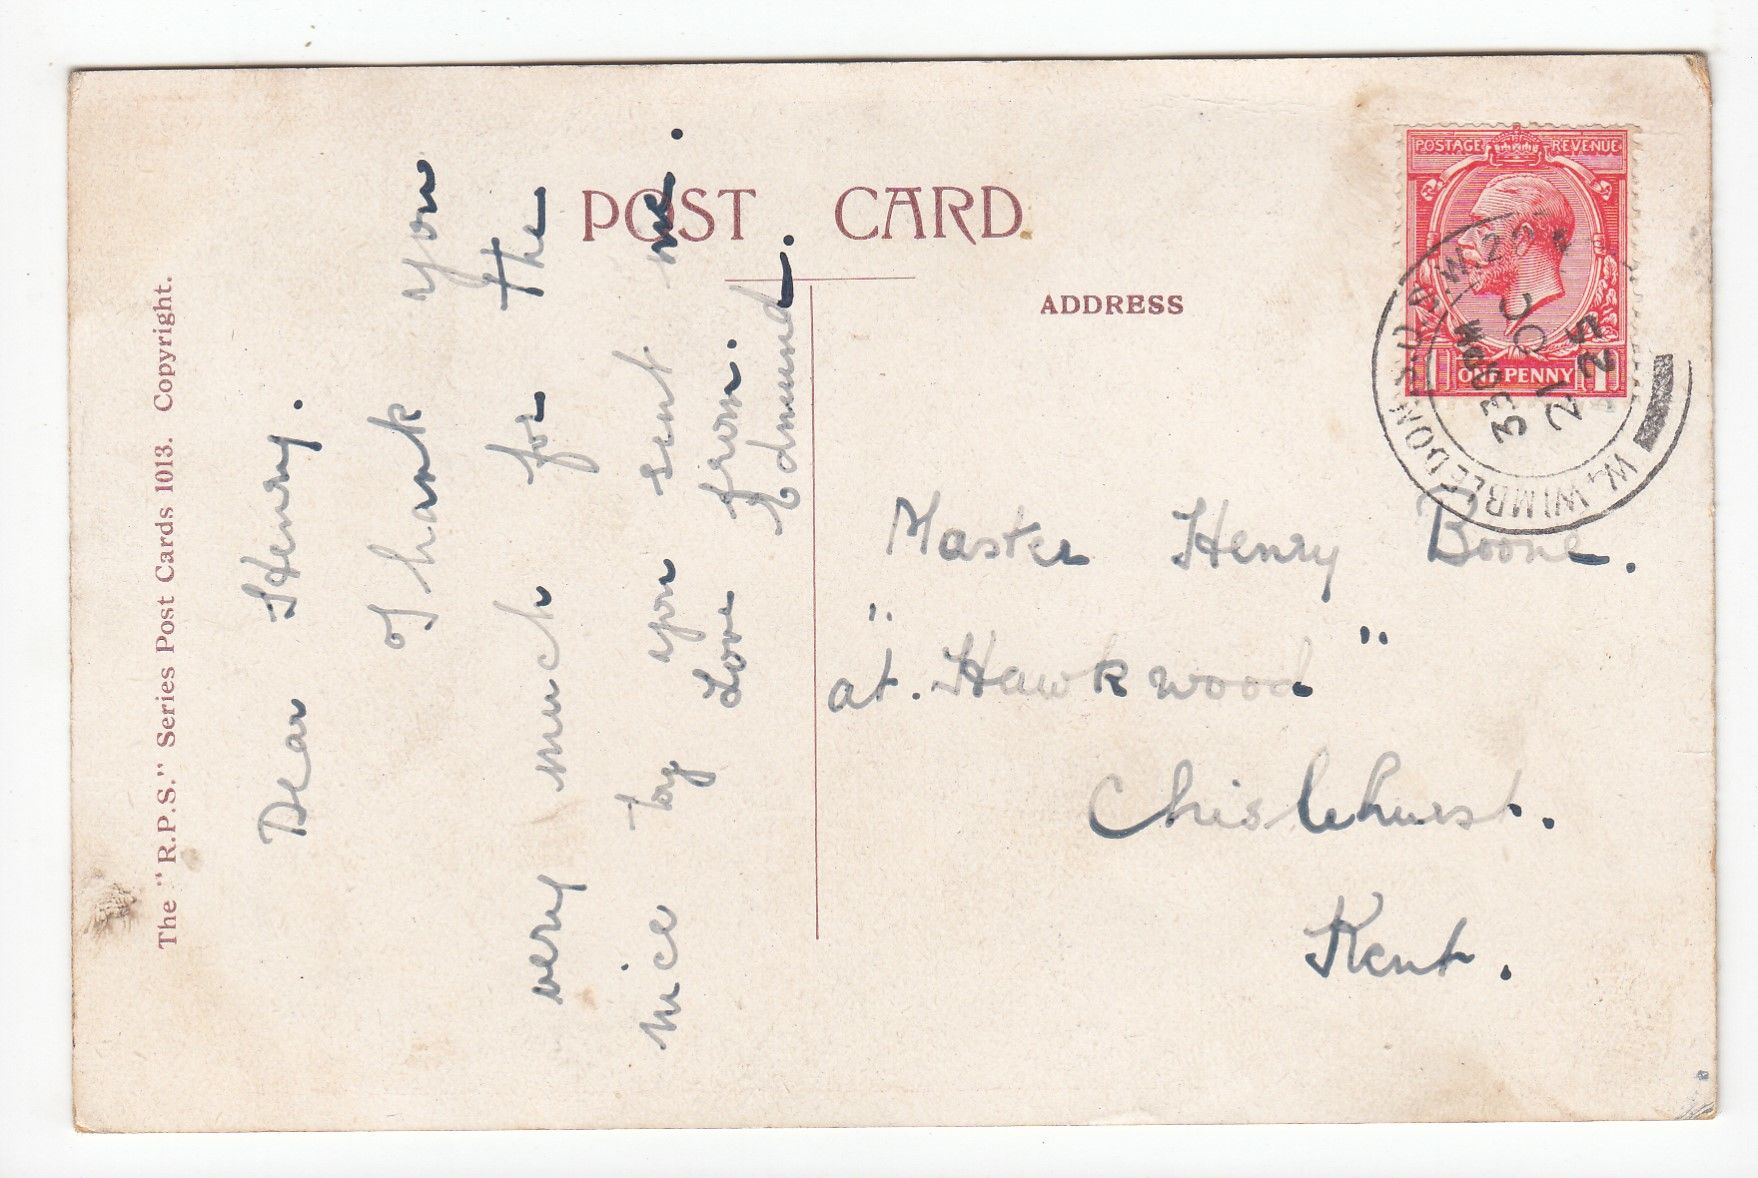 The "R.P.S." Series Post Cards 1013. Copyright.
POST CARD
ADDRESS
Dear Henry.
Thank you
very much for the
nice toy you sent me.
Love from.
Edmund.
Master Henry Boone.
at. "Hawkwood"
Chislehurst.
Kent.
POSTAGE REVENUE
1 ONE PENNY 1
W. WIMBLEDON S.O. S.W.20
330PM
21 DC
25